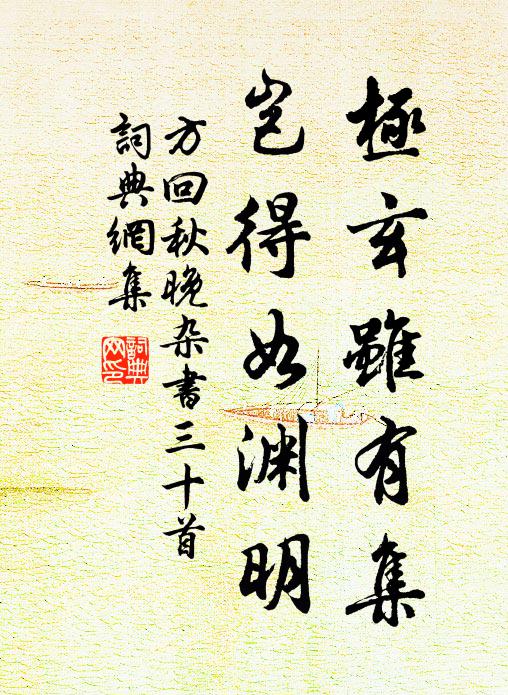 極玄雖有集
豈得如渊明
方回秋晚杂書三十首
詞典網集
詞典
网印